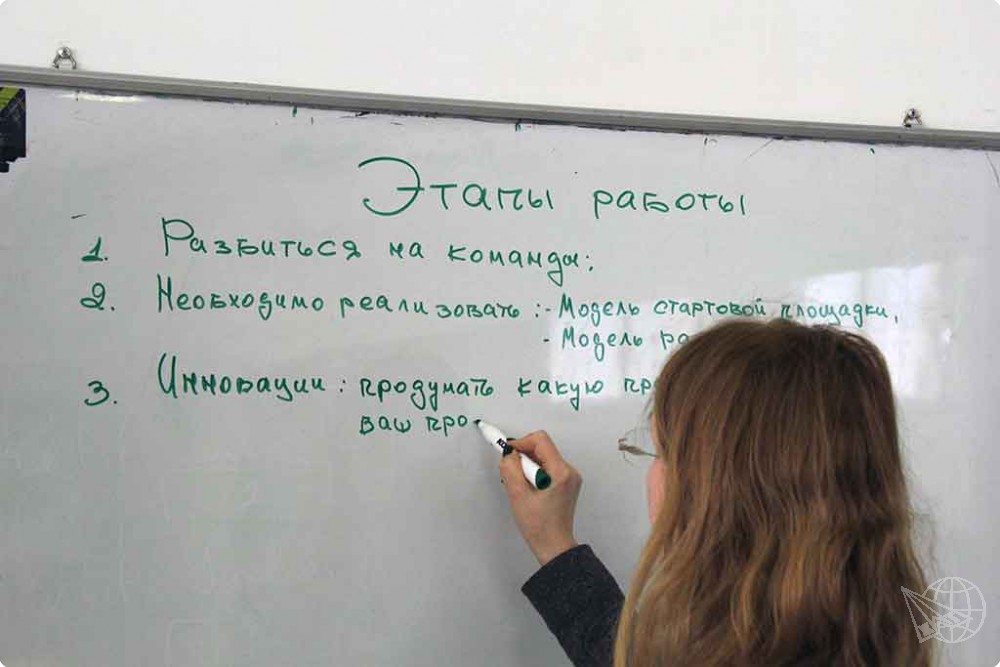 Этапы работы
1. Разбиться на команды;
2. Необходимо реализовать: - Модель стартовой площадки,
- Модель
3. Инновации: продумать какую
ваш